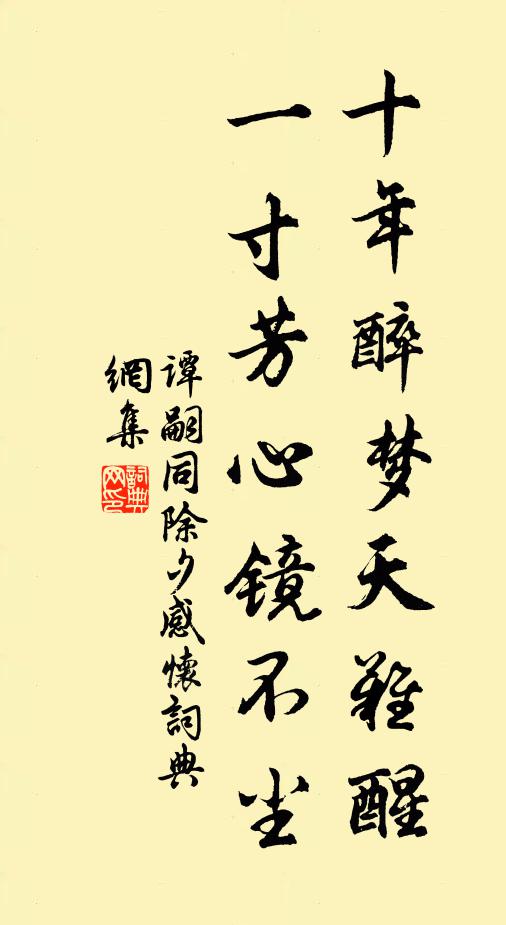 十年醉梦天难醒
一寸芳心镜不尘
谭嗣同除夕感懷詞典
網集
詞典
网印